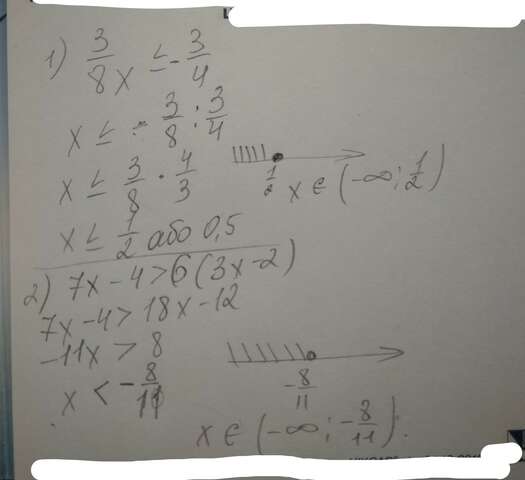 1) 3/8 x ≤ - 3/4
x ≤ - 3/8 : 3/4
x ≤ 3/8 · 4/3
1/2 x ∈ (-∞; 1/2)
x ≤ 1/2 або 0,5
2) 7x - 4 > 6 (3x - 2)
7x - 4 > 18x - 12
-11x > 8
x < - 8/11
- 8/11
x ∈ (-∞; - 8/11).